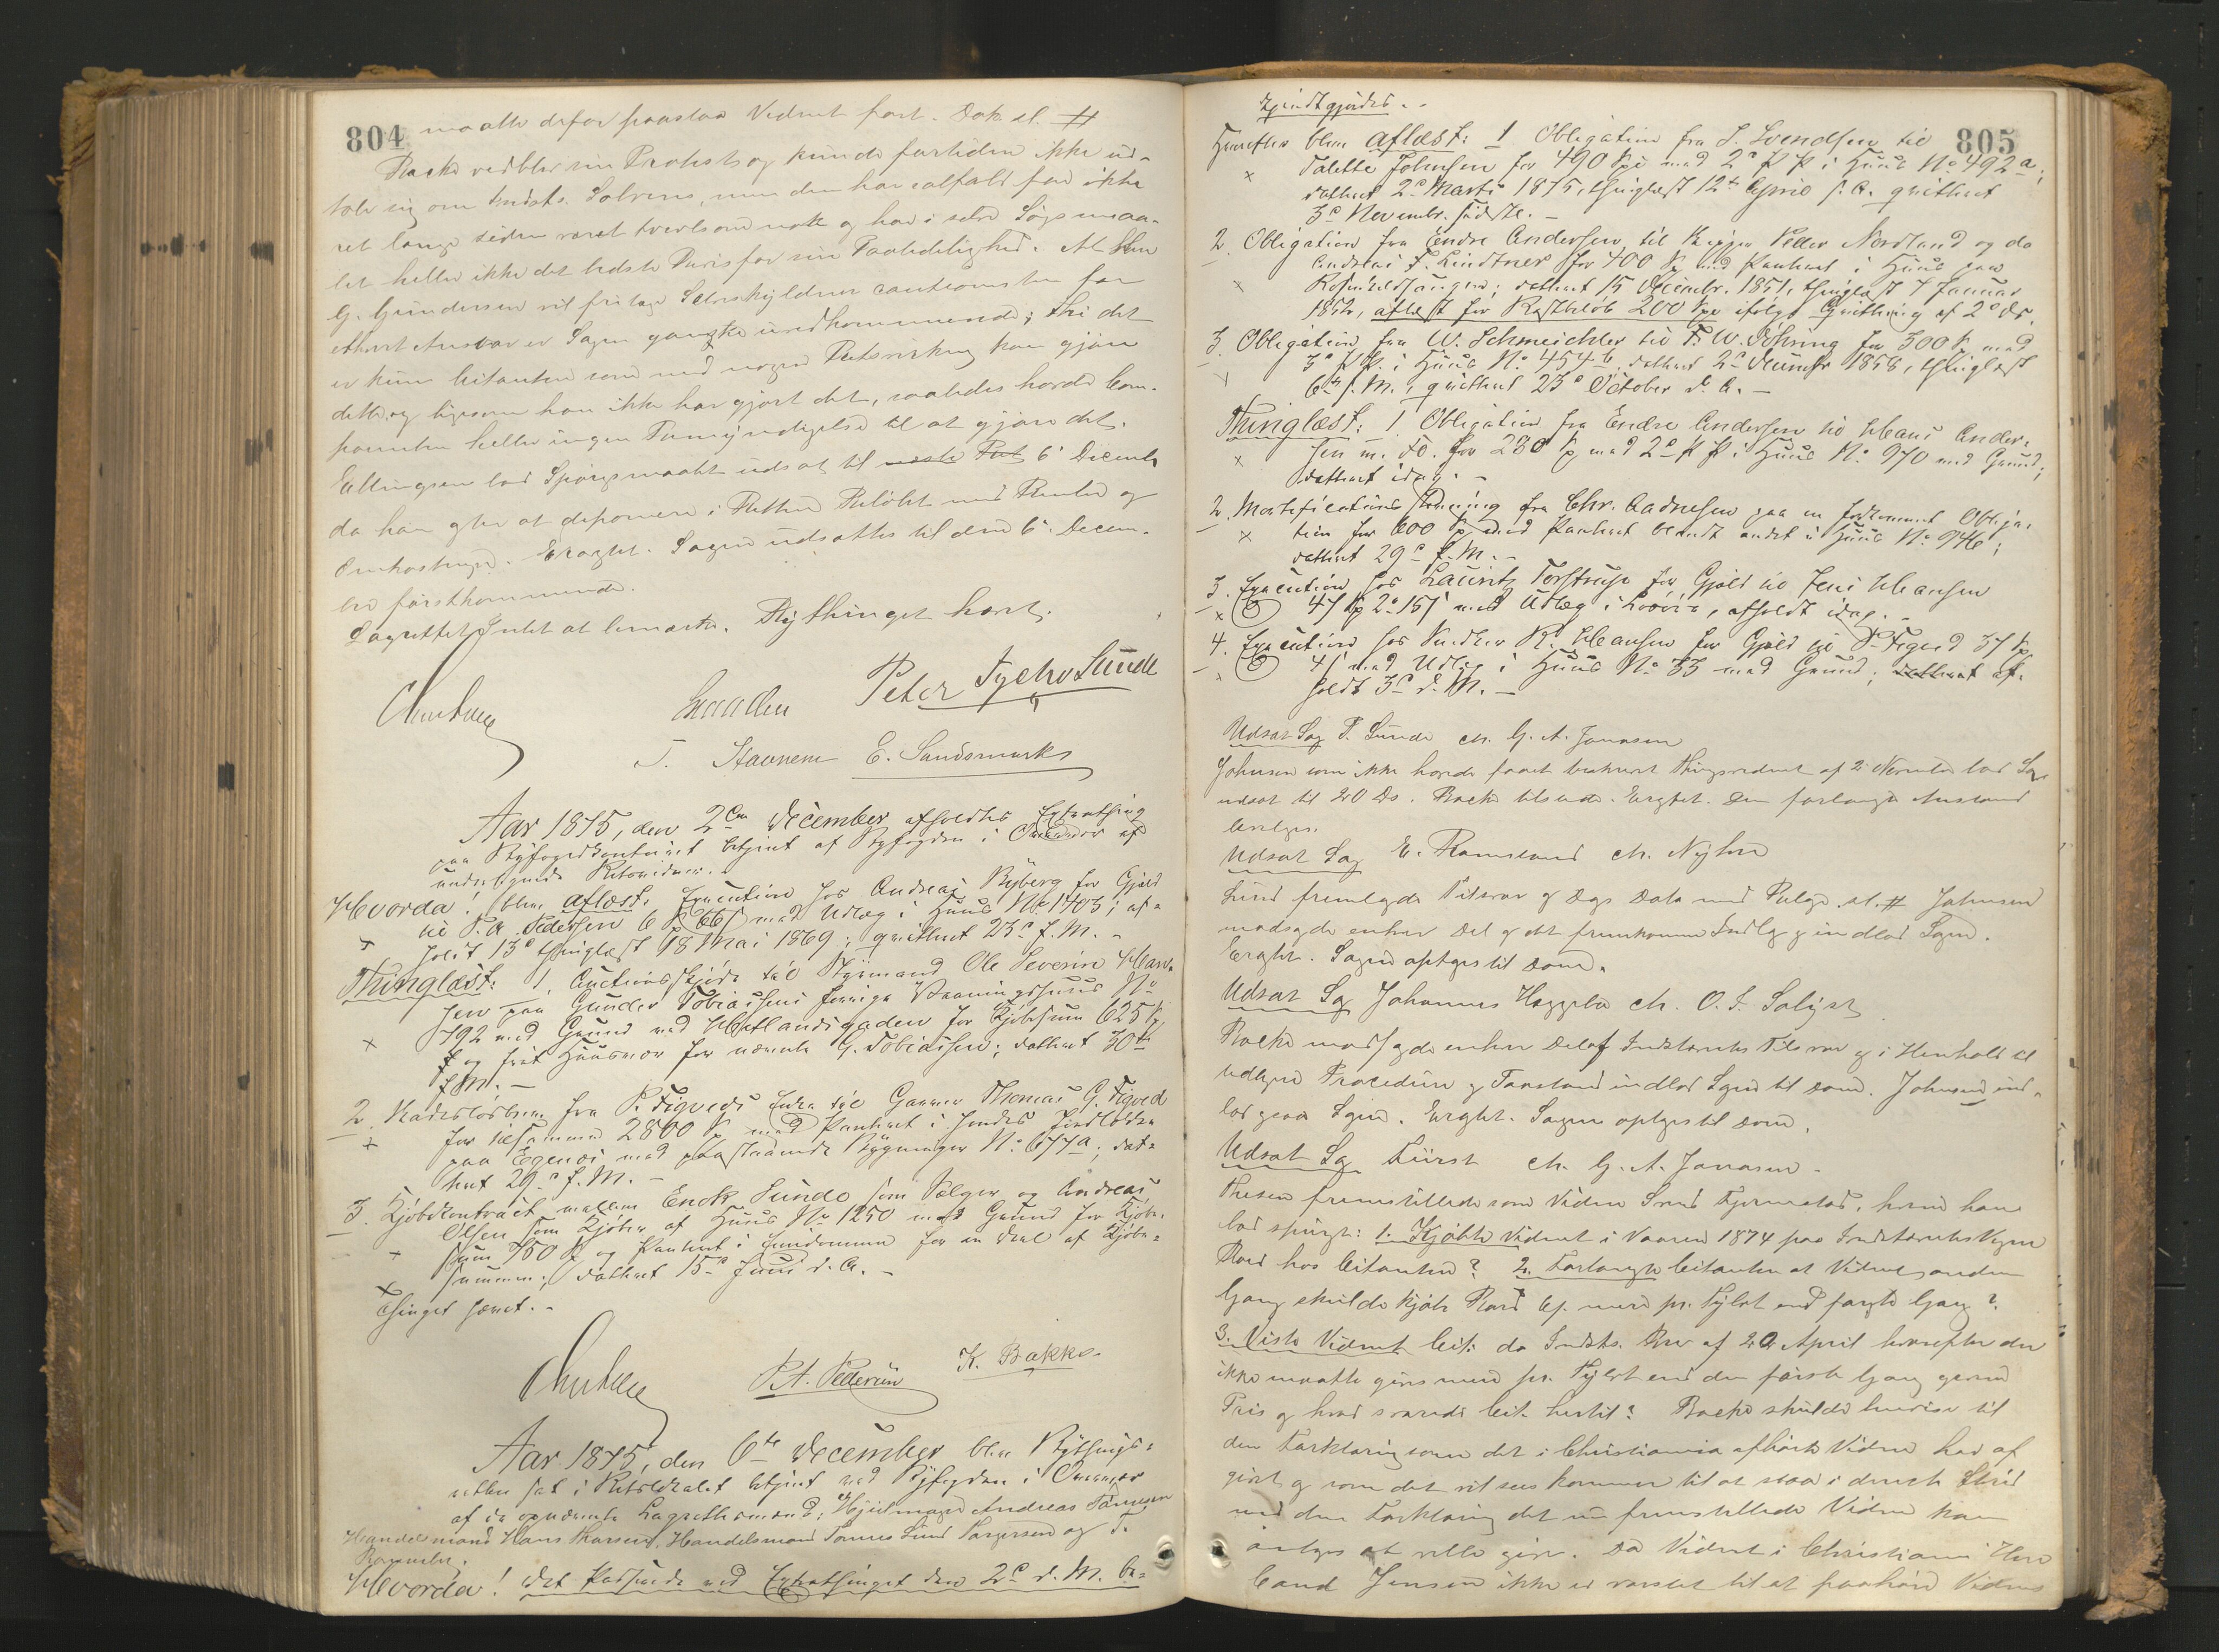 804
maatte derfor paastaa Vidnet ført. Dok sl. #
Racke vedblev sin Protest og kunde fortiden ikke ud-
tale sig om Indsts. Solvens, men den har ialfald før ikke
ret længe siden været tvivlsom nok og har i selve Søgsmaa-
let heller ikke det bedste Beviis for sin Paalidelighed. At
G. Gundersen vil fritage Selvskyldner cautionisten for
ethvert Ansvar er Sagen ganske uvedkommende; thi det
er kun Citanten som med nogen Retsvirkning kan gjøre
dette, og ligesom han ikke har gjort det, saaledes havde Com-
parenten heller ingen Bemyndigelse til at gjøre det.
Ellingsen lod Spørgsmaalet udsat til næste Ret 6 Decemb
da han agter at deponere i Retten Beløbet med Renter og
Omkostninger. Eragtet. Sagen udsattes til den 6 Decem-
ber førstkommende.
Lagrettet Intet at bemærke. Bythinget hævet.
Peter Tycho Sunde
T. Stavnem E. Sandsmark
Aar 1875, den 2den December afholdtes Extrathing
paa Byfogedkontoret betjent af Byfogden i Overvær af
undertegnede Retsvidner.
Hvorda! blev aflæst: Execution hos Andreas Ryberg for Gjæld
til P. A. Pedersen 6 Sp 66 s med Udlæg i Huus No 1403; af-
x holdt 13de thinglæst 18 Mai 1869; qvitteret 23de f. M. -
Thinglæst: 1. Auctionsskjøde til Styrmand Ole Severin Han-
sen paa Gunder Tobiassens forrige Vaaningshuus No
x 792 med Grund ved Hetlandsgaden for Kjøbesum 625 Sp
og frit Huusvær for nævnte G. Tobiassen; dateret 30te
f. M. -
2. Kaderløsbrev fra P. Tigveds Enke til Garver Thomas G. Figved
x for tilsammen 2800 Sp med Panteret i hendes Jordlodder
paa Egenæs med paastaaende Bygninger No 677a; dat-
eret 29de f. M. -
3. Kjøbekontract mellem Enok Sunde som Sælger og Andreas
Olsen som Kjøber af Huus No 1250 med Grund for Kjøbe-
x sum 750 Sp og Panteret i Eiendommen for en Deel af Kjøbe-
summen; dateret 15de Juni d. A. -
x Thinget hævet. -
P. A. Pedersen K. Bakke
Aar 1875, den 6te December blev Bythings-
retten sat i Retslokalet betjent ved Byfogden i Overvær
af de opnævnte Lagrettesmænd: Hjulmager Andreas Tønnesen
Handelsmand Hans Thorsen, Handelsmand Tønnes Lund Torgersen og T.
Hvorda! det Passerede ved Extrathinget den 2de d. M. be-
805
kjendtgjordes. -
Herefter blev aflæst: 1 Obligation fra S. Svendsen til
x Talette Johnsen for 490 Spd med 2den Pr Pt i Huus No 492a;
dateret 2de Marts 1875, thinglæst 12te April s. A. qvitteret
3de Novembr. sidste. -
2. Obligation fra Endre Andersen til Kipper Peder Nordland og do
Andreas F. Lindtner for 400 Sp med Panteret i Huus paa
x dateret 15 Decembr. 1851, thinglæst 7 Januar
1852, aflæst for Restbeløb 200 Spd ifølge Qvittering af 2de ds.
3. Obligation fra W. Schmeichler til F. W. Döhring for 300 Sp med
3de Pr Pt. i Huus No 454b, dateret 2de December 1858, thinglæst
6te s. M., qvitteret 23de October d. A. -
Thinglæst: 1. Obligation fra Endre Andersen til Hans Ander-
x sen m. Fl. for 230 Sp med 2de Pr Pt i Huus No 970 med Grund;
dateret idag. -
2. Mortificationsstævning fra Chr. Aadnesen paa en forkommet Obliga-
x tion for 600 Sp med Panteret blandt andet i Huus No 946;
dateret 29de f. M. -
3. Execution hos Lauritz Torstrup for Gjæld til Jens Hansen
x 47 Sp 2 15 s med Udlæg i Løsøre, afholdt idag. -
4. Execution hos Snedker R. Hansen for Gjæld til P. Figved 37 Sp
4 s med Udlæg i Huus No 33 med Grund; dateret af-
holdt 3de d. M. -
Udsat Sag P. Sunde ctr. G. A. Jonasen
Johnsen som ikke havde faaet beskrevet Thingsvidnet af 2 November lod Sagen
udsat til 20 ds. Racke tilstede. Eragtet. Den forlangte Anstand
bevilges.
Udsat Sag E. Ramsland ctr. Nyhre
Lund fremlagde Tilsvar af Dags Dato med Bilage sl. # Johnsen
modsagde enhver Del af det fremkomne Indlæg og indlod Sagen.
Eragtet. Sagen optages til Dom.
Udsat Sag Johannes Haggebø ctr. O. J. Solyst
Racke modsagde enhver Del af Indstævntes Tilsvar og i Henhold til
tidligere Procedure og Paastand indlod Sagen til Dom. Johnsen ind-
lod ogsaa Sagen. Eragtet. Sagen optages til Dom.
Udsat Sag Fürst ctr. G. A. Jonasen -
Thesen fremstillede som Vidne Svend Fjermestad, hvem han
lod spørge: 1. Kjøbte Vidnet i Vaaren 1874 paa Indstævntes Vegne
Bord hos Citanten? 2. Forlangte Citanten at Vidnet anden
Gang skulde kjøbe Bord 6 s. mere pr. Tylvt end første Gang?
3. Viste Vidnet Cit. da Indsts. Brev af 20 April hvorefter der
ikke maatte gives mere pr. Tylvt end den første Gang givne
Pris og hvad svarede Cit. hertil? Racke skulde henvise til
den Forklaring som det i Christiania afhørte Vidne har af
givet og som det vil sees kommer til at staa i directe Strid
med den Forklaring det nu fremstillede Vidne kan
antages at ville give. Da Vidnet i Christiania Herr
Cand Jensen ikke er varslet til at paahøre Vidnets